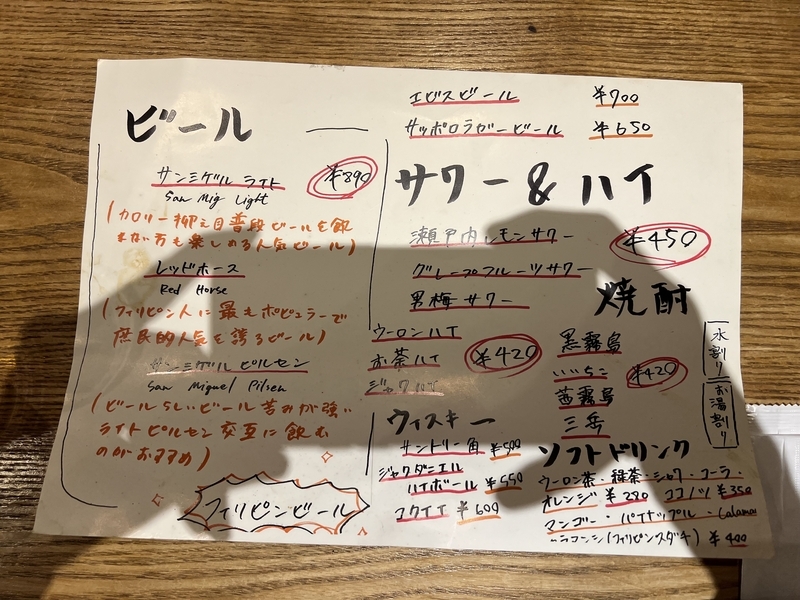 ビール
サンミゲル ライト ¥890
San Mig Light
(カロリー抑え目普段ビールを飲
まない方も楽しめる人気ビール)
レッドホース
Red Horse
(フィリピン人に最もポピュラーで
庶民的人気を誇るビール)
サンミゲルピルセン
San Miguel Pilsen
(ビールらしいビール苦みが強い
ライトピルセン交互に飲む
のがおすすめ)
フィリピンビール
エビスビール ¥700
サッポロラガービール ¥650
サワー & ハイ
瀬戸内レモンサワー ¥450
グレープフルーツサワー
男梅サワー
ウーロンハイ
お茶ハイ ¥420
ジャワハイ
焼酎
黒霧島
いいちこ ¥420
茜霧島
三岳
水割り
お湯割り
ウィスキー
サントリー角 ¥500
ジャクダニエル
ハイボール ¥550
コクイエ ¥600
ソフトドリンク
ウーロン茶・緑茶・ジャワ・コーラ・
オレンジ ¥280 ココナツ ¥350
マンゴー・パイナップル・Calaman
カラマンシ(フィリピンスダチ) ¥400